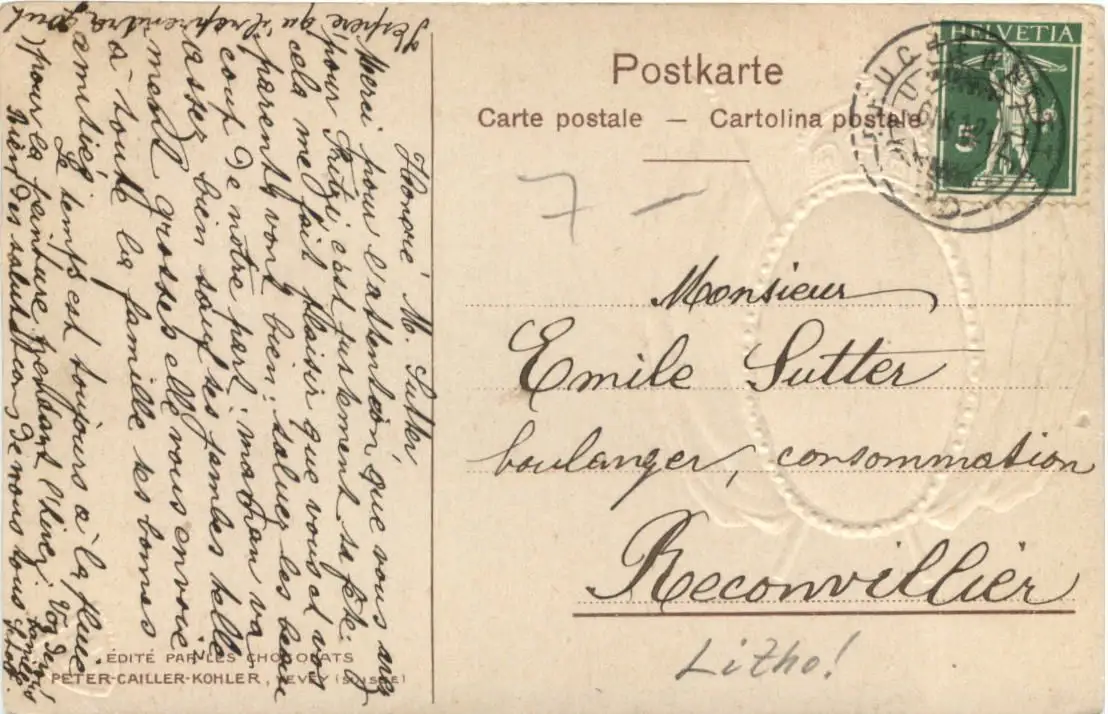 Postkarte
Carte postale — Cartolina postale
HELVETIA
5
7 —
Monsieur
Emile Sutter
boulanger, consommation
Reconvillier
Litho!
Honoré M. Sutter,
Merci pour l'attention que vous avez
pour Fritz, c'est justement sa fête.
cela me fait plaisir que vous et vos
parents vont bien. saluer les beau
coup de notre part. maman va
assez bien sauf ses jambes telle
ment grosses elle vous envoie
à toute la famille ses bonnes
amitiés
Le temps est toujours à la pluie
J'espère qu'il reprendra goût
pour la peinture pendant l'hiver.
Bien des salutations de nous tous
ÉDITÉ PAR LES CHOCOLATS
PETER-CAILLER-KOHLER, VEVEY (SUISSE)